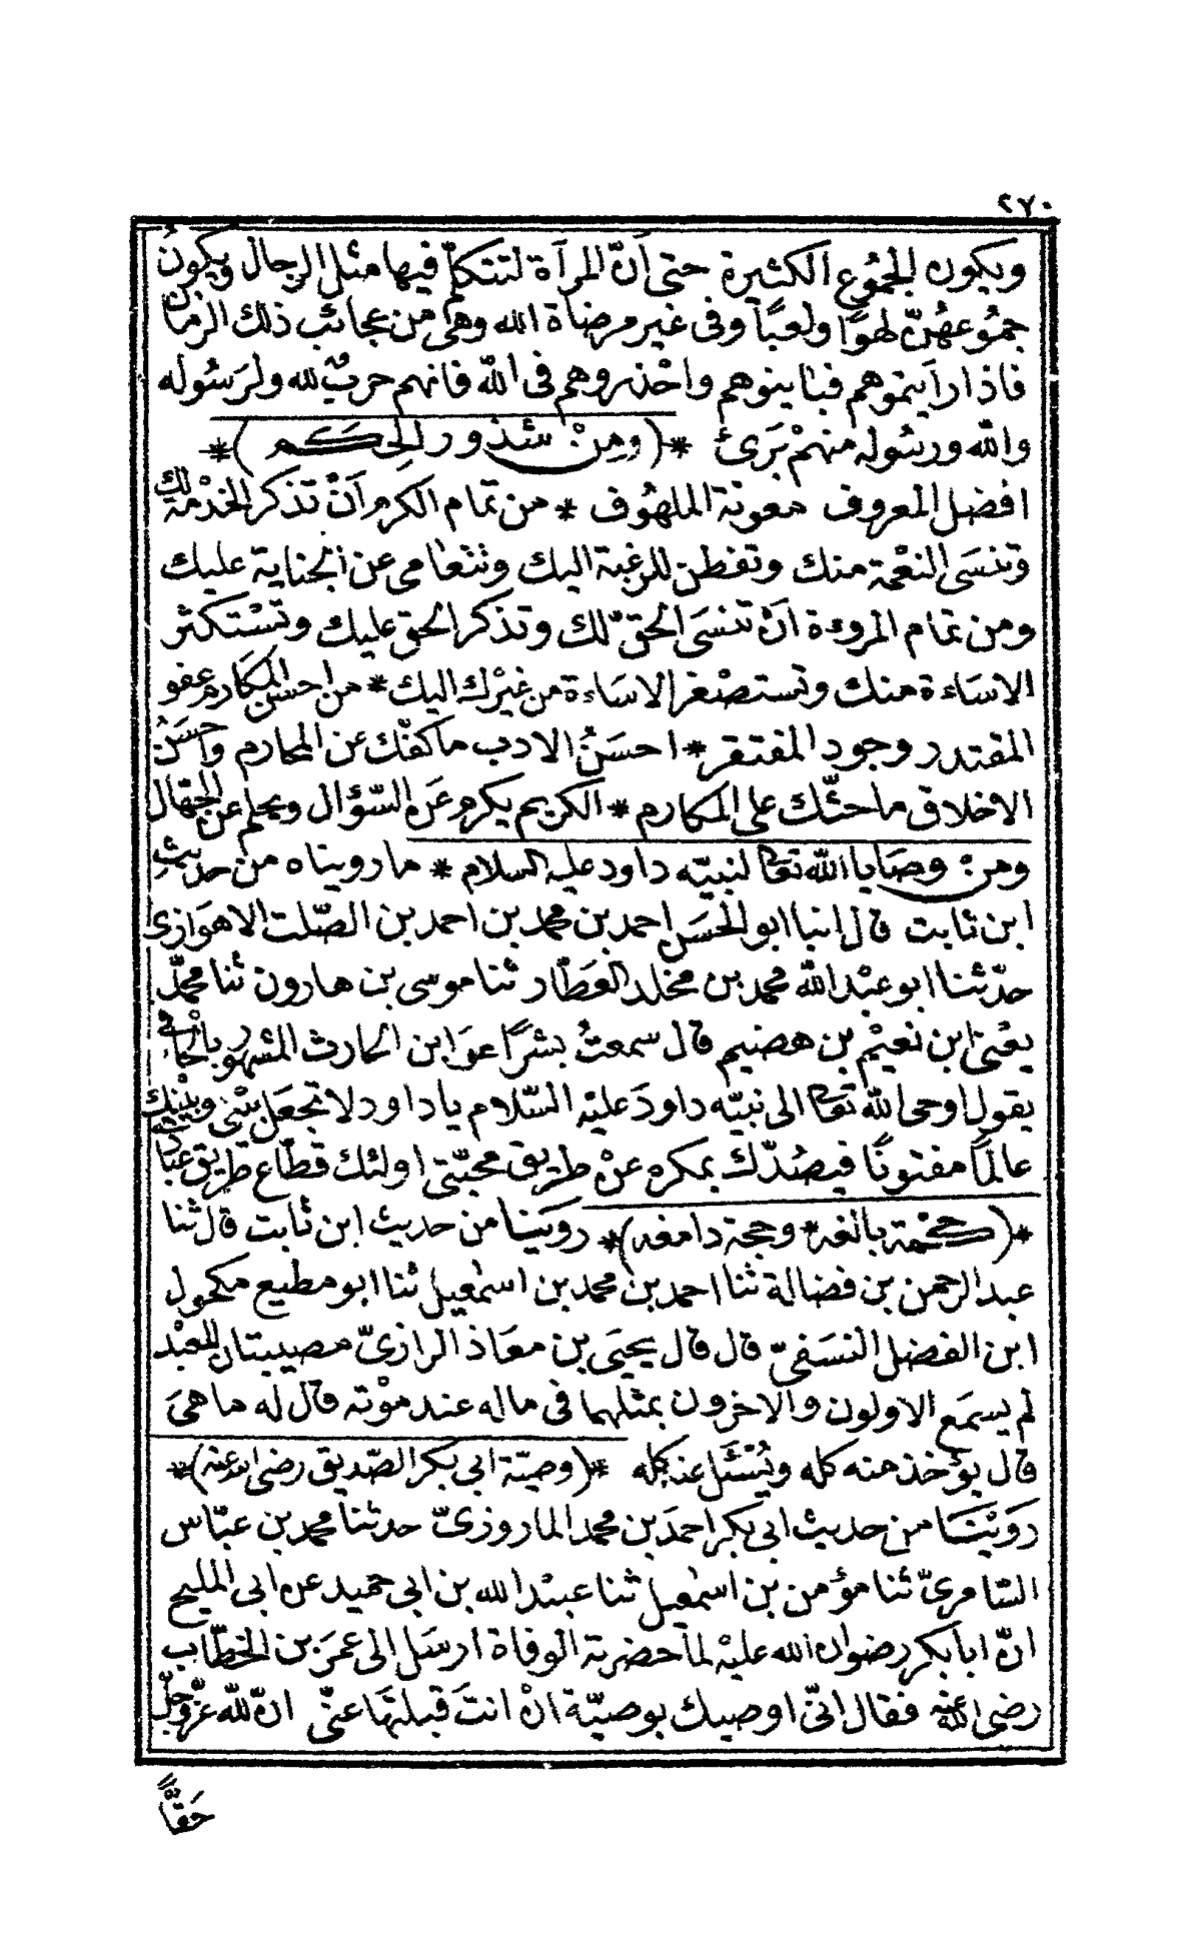 ٢٧٠
ويكون الجموع الكثيرة حتى أنّ المرأة لتتكلّم فيها مثل الرجال ويكون
جموعهنّ لهوًا ولعبًا وفى غير مرضاة الله وهى من عجائب ذلك الزمان
فاذا رايتموهم فباينوهم واحْذروهم فى الله فانهم حربٌ لله ولرسُوله
والله ورسُوله منهمْ بَرىءٌ * (ومِنْ شذور الحِكَم) *
افضل المعروف معونة الملهُوف * من تمام الكرم اَنْ تذكر الخدْمة لك
وتنسَى النعْمة منك وتفطن للرغبة اليك وتتعامى عن الجناية عليك
ومن تمام المروءة اَنْ تنسَى الحق لك وتذكر الحق عليك وتسْتكثر
الاسَاءة منك وتستصْغر الاسَاءة من غيْرك اليك * من احسن المكارم عفو
المقتدر وجود المفتقر * احسَنُ الادب ماكفّك عن المحارم واحسَنُ
الاخلاق ماحثّك على المكارم * الكريم يكرم عَن السّؤال ويحلم عن الجهّال
ومن وصَايا الله تعا لنبيّه داود عليه السلام * ما رويناه من حديث
ابن ثابت قال انبا ابو الحسَن احمد بن محمد بن احمد بن الصّلت الاهوَازى
حدّثنا ابو عبْد الله محمد بن مخلد العَطّار ثنا موسى بن هارون ثنا محمّد
يعْنى ابن نعيْم بن هضيم قال سمعتُ بشرًا عوَ ابن الحارث المشهور بالحافى
يقول اوحى الله تعا الى نبيّه داودَ عليْه السّلام يا داود لا تجعَل بيْنى وبيْنك
عالمًا مفتونًا فيصُدّك بمكره عنْ طريق محبّتى اولئك قطّاع طريق عبادى
* (حكْمة بالغه * وحجة دامغه) * روَيْنا من حديث ابن ثابت قال ثنا
عبد الرحمن بن فضالة ثنا احمد بن محمد بن اسمٰعيل ثنا ابو مطيع مكحول
ابن الفضل النسَفىّ قال قال يحيَى بن معَاذ الرازىّ مصيبتان للعبْد
لم يسمَع الاولون والاخرون بمثلهما فى ماله عند موْته قال له ما هىَ
قال يؤخذ منه كله ويُسْئَل عنه كله * (وصيّة ابى بكر الصّديق رضى الله عنه) *
روَيْنَا من حديث ابى بكر احمدَ بن محمد الماروزىّ حدثنا محمد بن عبّاس
السّامرىّ ثنا مؤمن بن اسمٰعيل ثنا عبيْد الله بن ابى حميد عن ابى المليح
انّ ابا بكر رضوان الله عليْه لما حضرته الوفاة ارسَل الى عمرَ بن الخطّاب
رضى الله عنه فقال انّى اوصيك بوصيّة انْ انتَ قبلتَها عنّى انّ لله عزّ وجلّ
حَقًّا